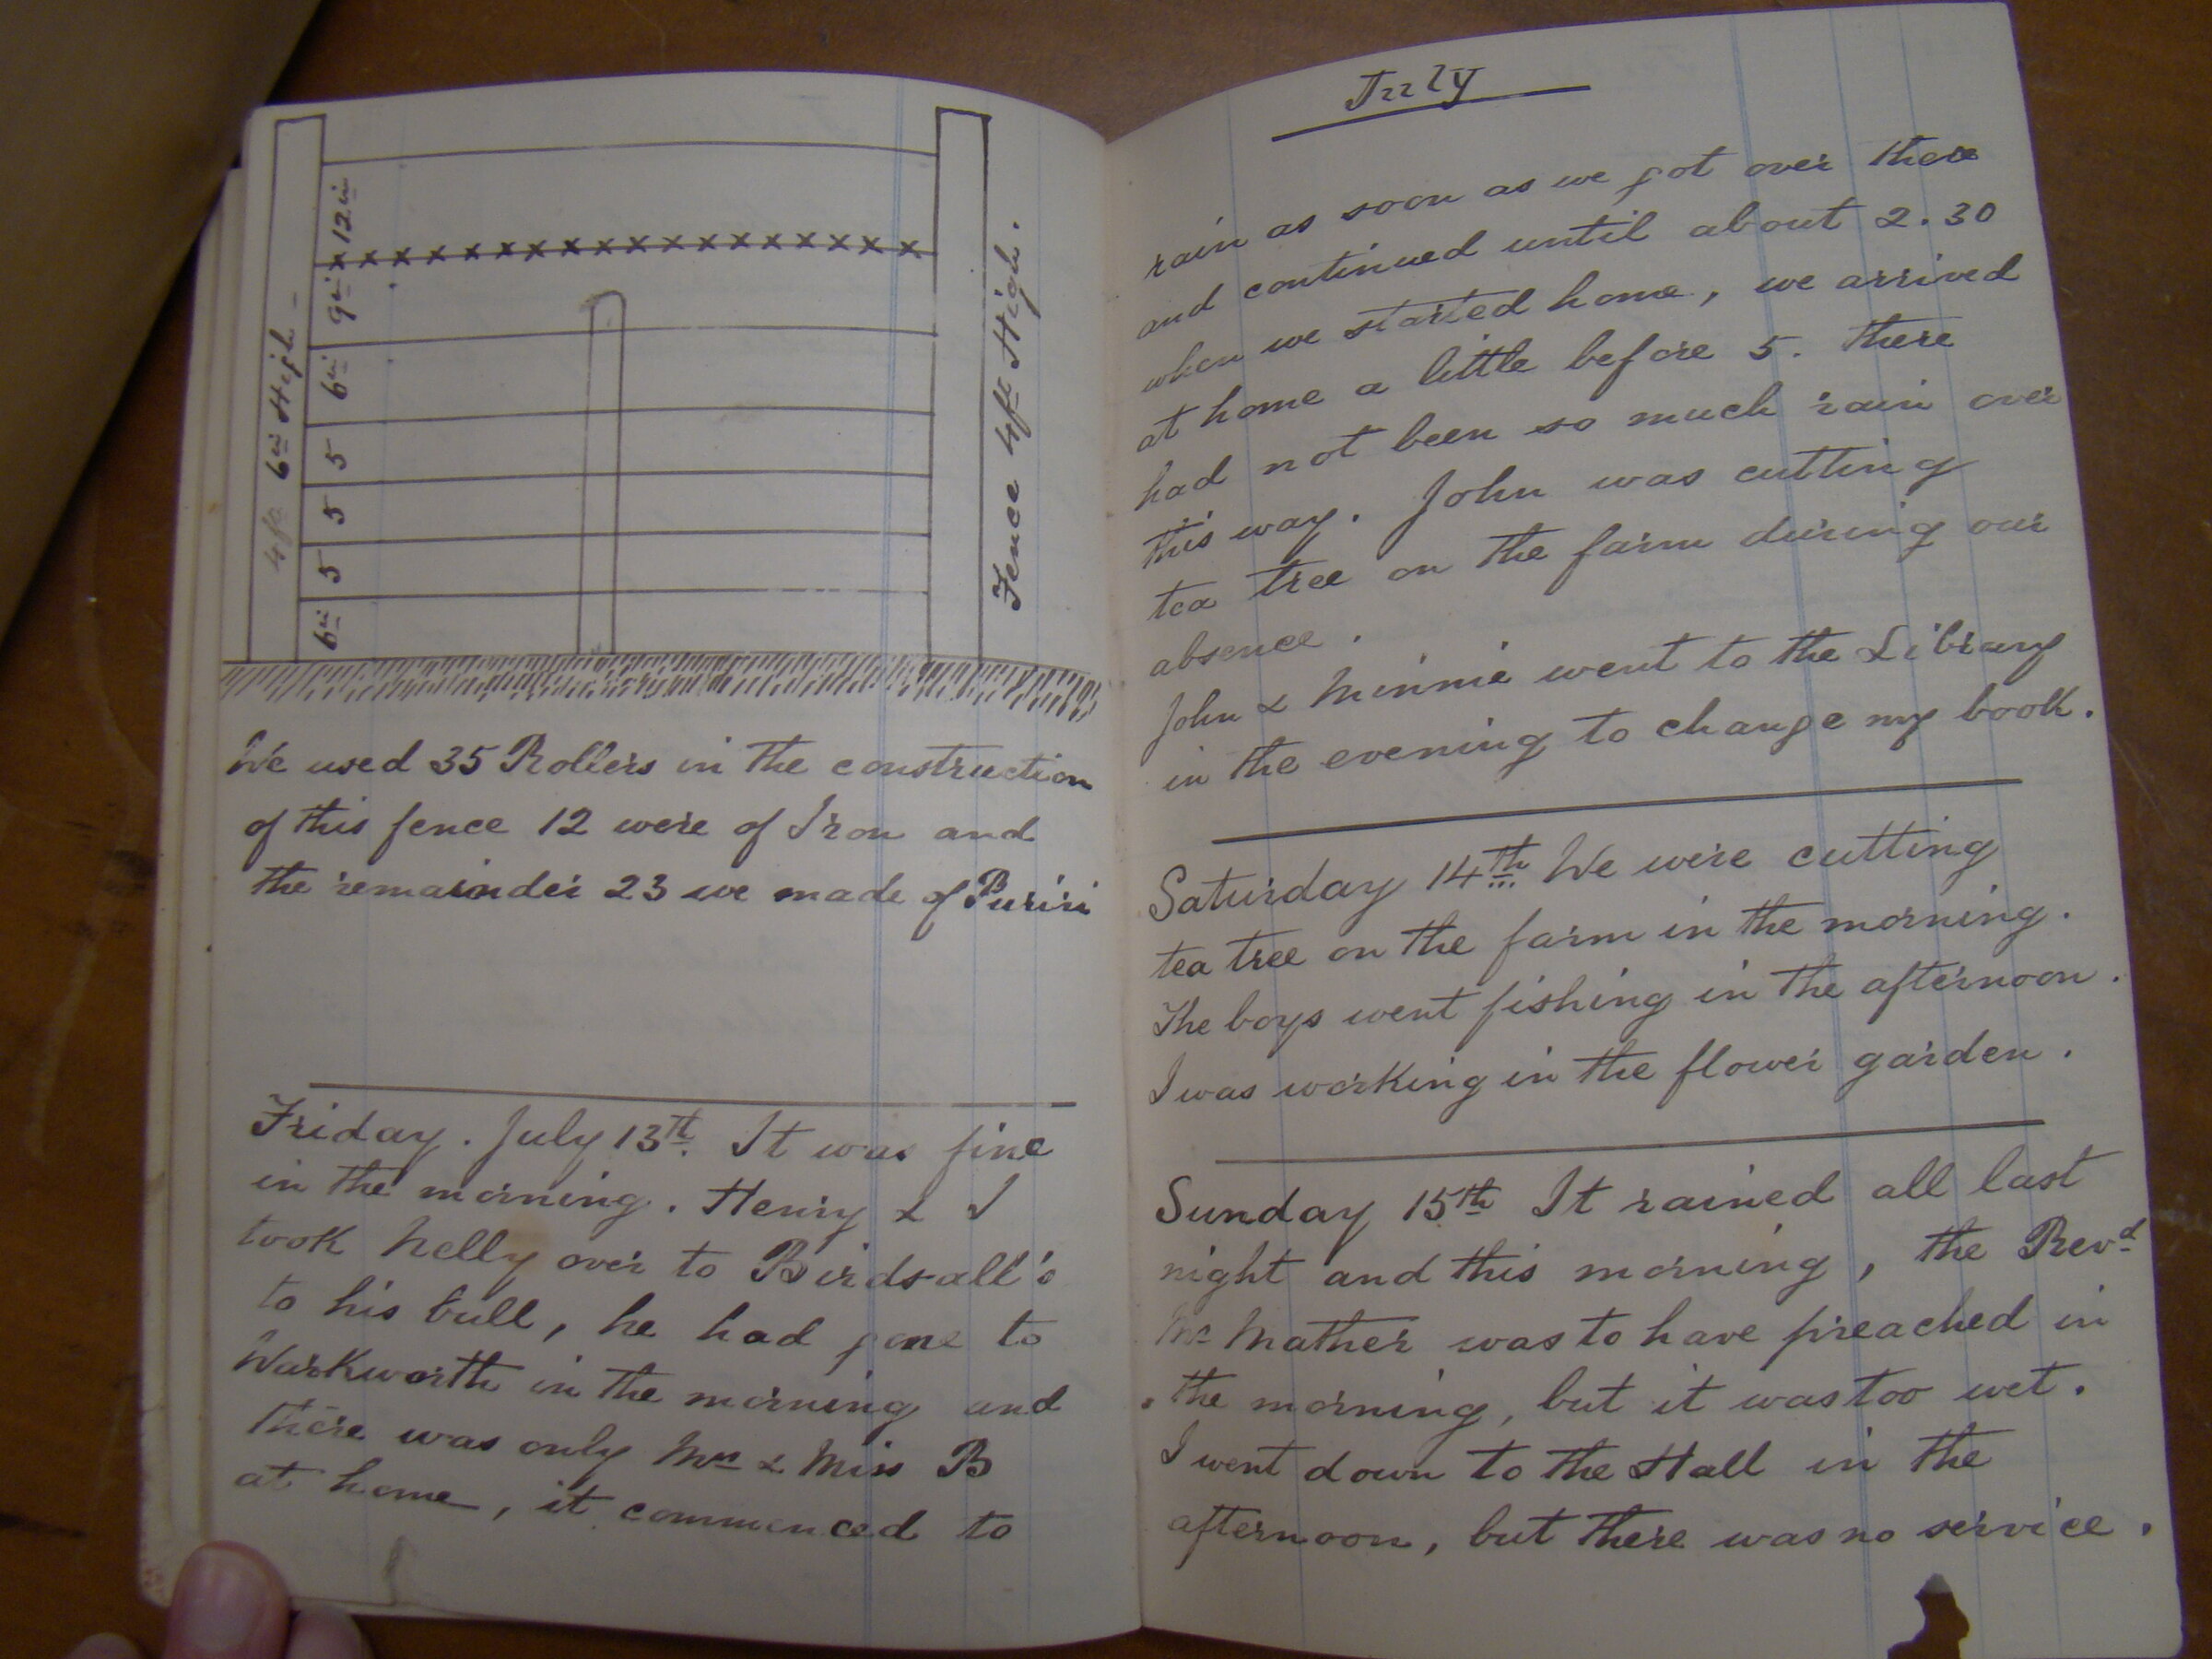 4ft 6in High -
12in
9in
6in
5
5
5
6in
Fence 4ft High.
We used 35 Rollers in the construction
of this fence 12 were of Iron and
the remainder 23 we made of Puriri
Friday. July 13th. It was fine
in the morning. Henry & I
took Nelly over to Birdsall's
to his bull, he had gone to
Warkworth in the morning and
there was only Mrs & Miss B
at home, it commenced to
July
rain as soon as we got over there
and continued until about 2.30
when we started home, we arrived
at home a little before 5. there
had not been so much rain over
this way. John was cutting
tea tree on the farm during our
absence.
John & Minnie went to the Library
in the evening to change my book.
Saturday 14th We were cutting
tea tree on the farm in the morning.
The boys went fishing in the afternoon.
I was working in the flower garden.
Sunday 15th It rained all last
night and this morning, the Revd
Mr Mather was to have preached in
the morning, but it was too wet.
I went down to the Hall in the
afternoon, but there was no service.